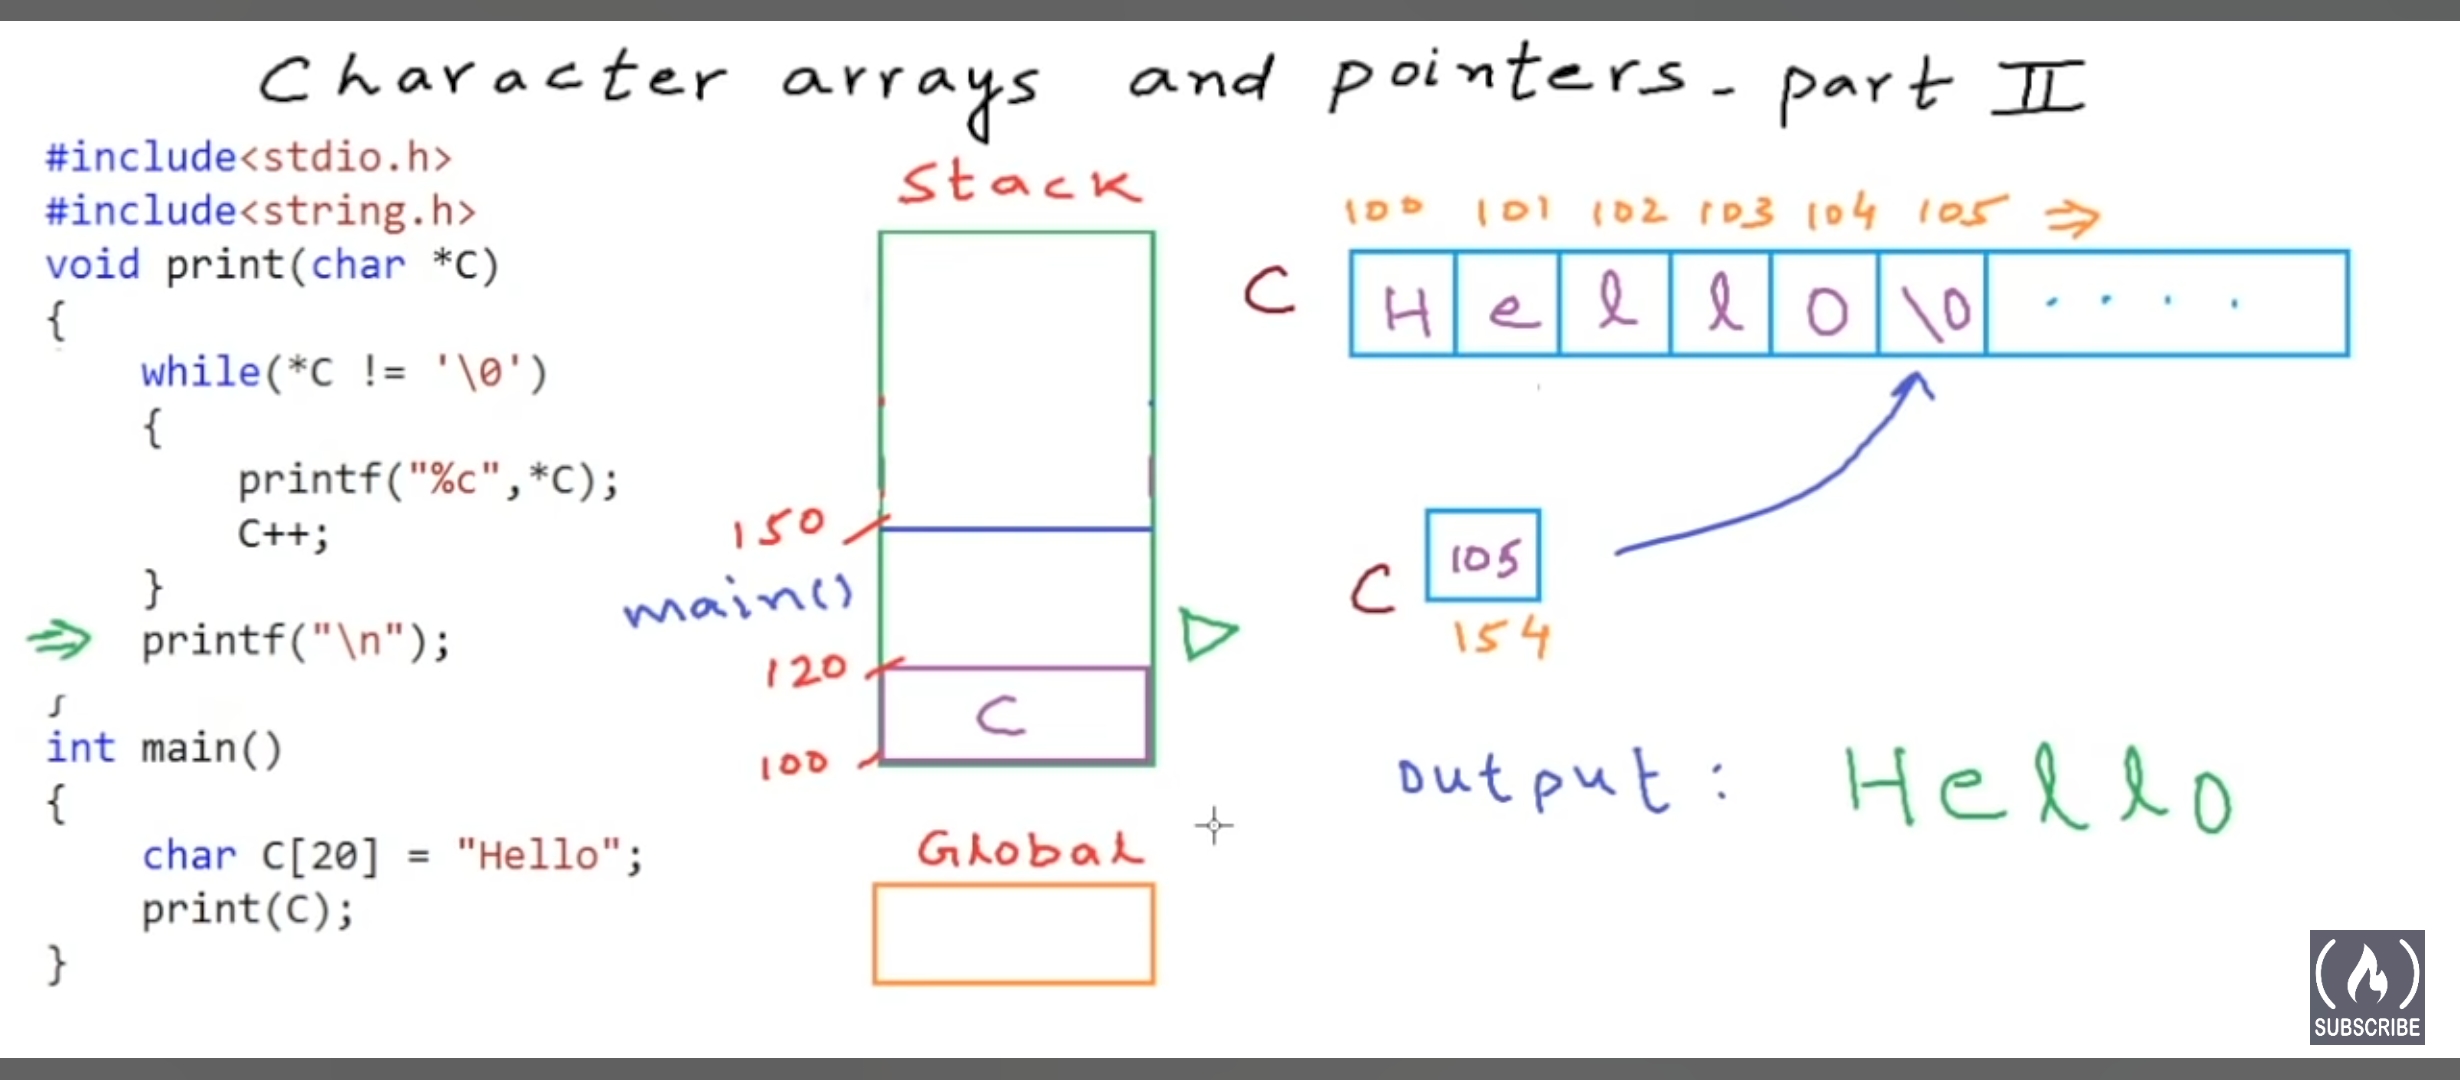 Character arrays and pointers - part II
#include<stdio.h>
#include<string.h>
void print(char *C)
{
while(*C != '\0')
{
printf("%c",*C);
C++;
}
printf("\n");
int main()
{
char C[20] = "Hello";
print(C);
}
Stack
150
main()
120
C
100
Global
100 101 102 103 104 105 ⇒
C H e l l o \0 . . . .
C 105
154
output : Hello
SUBSCRIBE